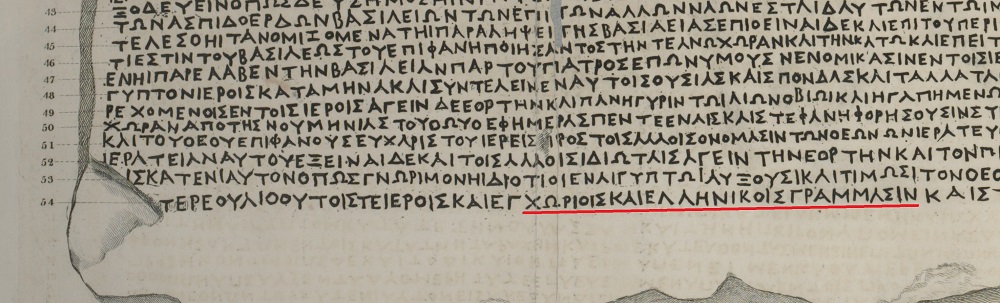 43
44 ΤΩΝΑΣΠΙΔΟΕΡΔΩΝΒΑΣΙΛΕΙΩΝΤΩΝΕΠΙΤΩΝΑΛΛΩΝΝΑΩΝΕΣΤΑΙΔΑΥΤΩΝΕΝΤΩΙ
45 ΤΕΛΕΣΘΗΙΤΑΝΟΜΙΖΟΜΕΝΑΤΗΙΠΑΡΑΛΗΨΕΙΤΗΣΒΑΣΙΛΕΙΑΣΕΠΙΘΕΙΝΑΙΔΕΚΑΙΕΠΙΤΟΥΠΕΡΙ
46 ΤΙΕΣΤΙΝΤΟΥΒΑΣΙΛΕΩΣΤΟΥΕΠΙΦΑΝΗΠΟΙΗΣΑΝΤΟΣΤΗΝΤΕΑΝΩΧΩΡΑΝΚΑΙΤΗΝΚΑΤΩΚΑΙΕΠΕΙΤ
47 ΕΝΗΙΠΑΡΕΛΑΒΕΝΤΗΝΒΑΣΙΛΕΙΑΝΠΑΡΤΟΥΠΑΤΡΟΣΕΠΩΝΥΜΟΥΣΝΕΝΟΜΙΚΑΣΙΝΕΝΤΟΙΣΙΕ
48 ΓΥΠΤΟΝΙΕΡΟΙΣΚΑΤΑΜΗΝΑΚΑΙΣΥΝΤΕΛΕΙΝΕΝΑΥΤΟΙΣΘΥΣΙΑΣΚΑΙΣΠΟΝΔΑΣΚΑΙΤΑΛΛΑΤΑ
49 ΡΕΧΟΜΕΝΟΙΣΕΝΤΟΙΣΙΕΡΟΙΣΑΓΕΙΝΔΕΕΟΡΤΗΝΚΑΙΠΑΝΗΓΥΡΙΝΤΩΙΑΙΩΝΟΒΙΩΙΚΑΙΗΓΑΠΗΜΕΝΩ
50 ΧΩΡΑΝΑΠΟΤΗΣΝΟΥΜΗΝΙΑΣΤΟΥΘΩΥΘΕΦΗΜΕΡΑΣΠΕΝΤΕΕΝΑΙΣΚΑΙΣΤΕΦΑΝΗΦΟΡΗΣΟΥΣΙΝΣΤ
51 ΚΑΙΤΟΥΘΕΟΥΕΠΙΦΑΝΟΥΣΕΥΧΑΡΙΣΤΟΥΙΕΡΕΙΣΠΡΟΣΤΟΙΣΑΛΛΟΙΣΟΝΟΜΑΣΙΝΤΩΝΘΕΩΝΩΝΙΕΡΑΤΕΥ
52 ΙΕΡΑΤΕΙΑΝΑΥΤΟΥΕΞΕΙΝΑΙΔΕΚΑΙΤΟΙΣΑΛΛΟΙΣΙΔΙΩΤΑΙΣΑΓΕΙΝΤΗΝΕΟΡΤΗΝΚΑΙΤΟΝΠ
53 ΙΣΚΑΤΕΝΙΑΥΤΟΝΟΠΩΣΓΝΩΡΙΜΟΝΗΙΔΙΟΤΙΟΙΕΝΑΙΓΥΠΤΩΙΑΥΞΟΥΣΙΚΑΙΤΙΜΩΣΙΤΟΝΘΕΟ
54 ΤΕΡΕΟΥΛΙΘΟΥΤΟΙΣΤΕΙΕΡΟΙΣΚΑΙΕΓΧΩΡΙΟΙΣΚΑΙΕΛΛΗΝΙΚΟΙΣΓΡΑΜΜΑΣΙΝΚΑΙΣΤ